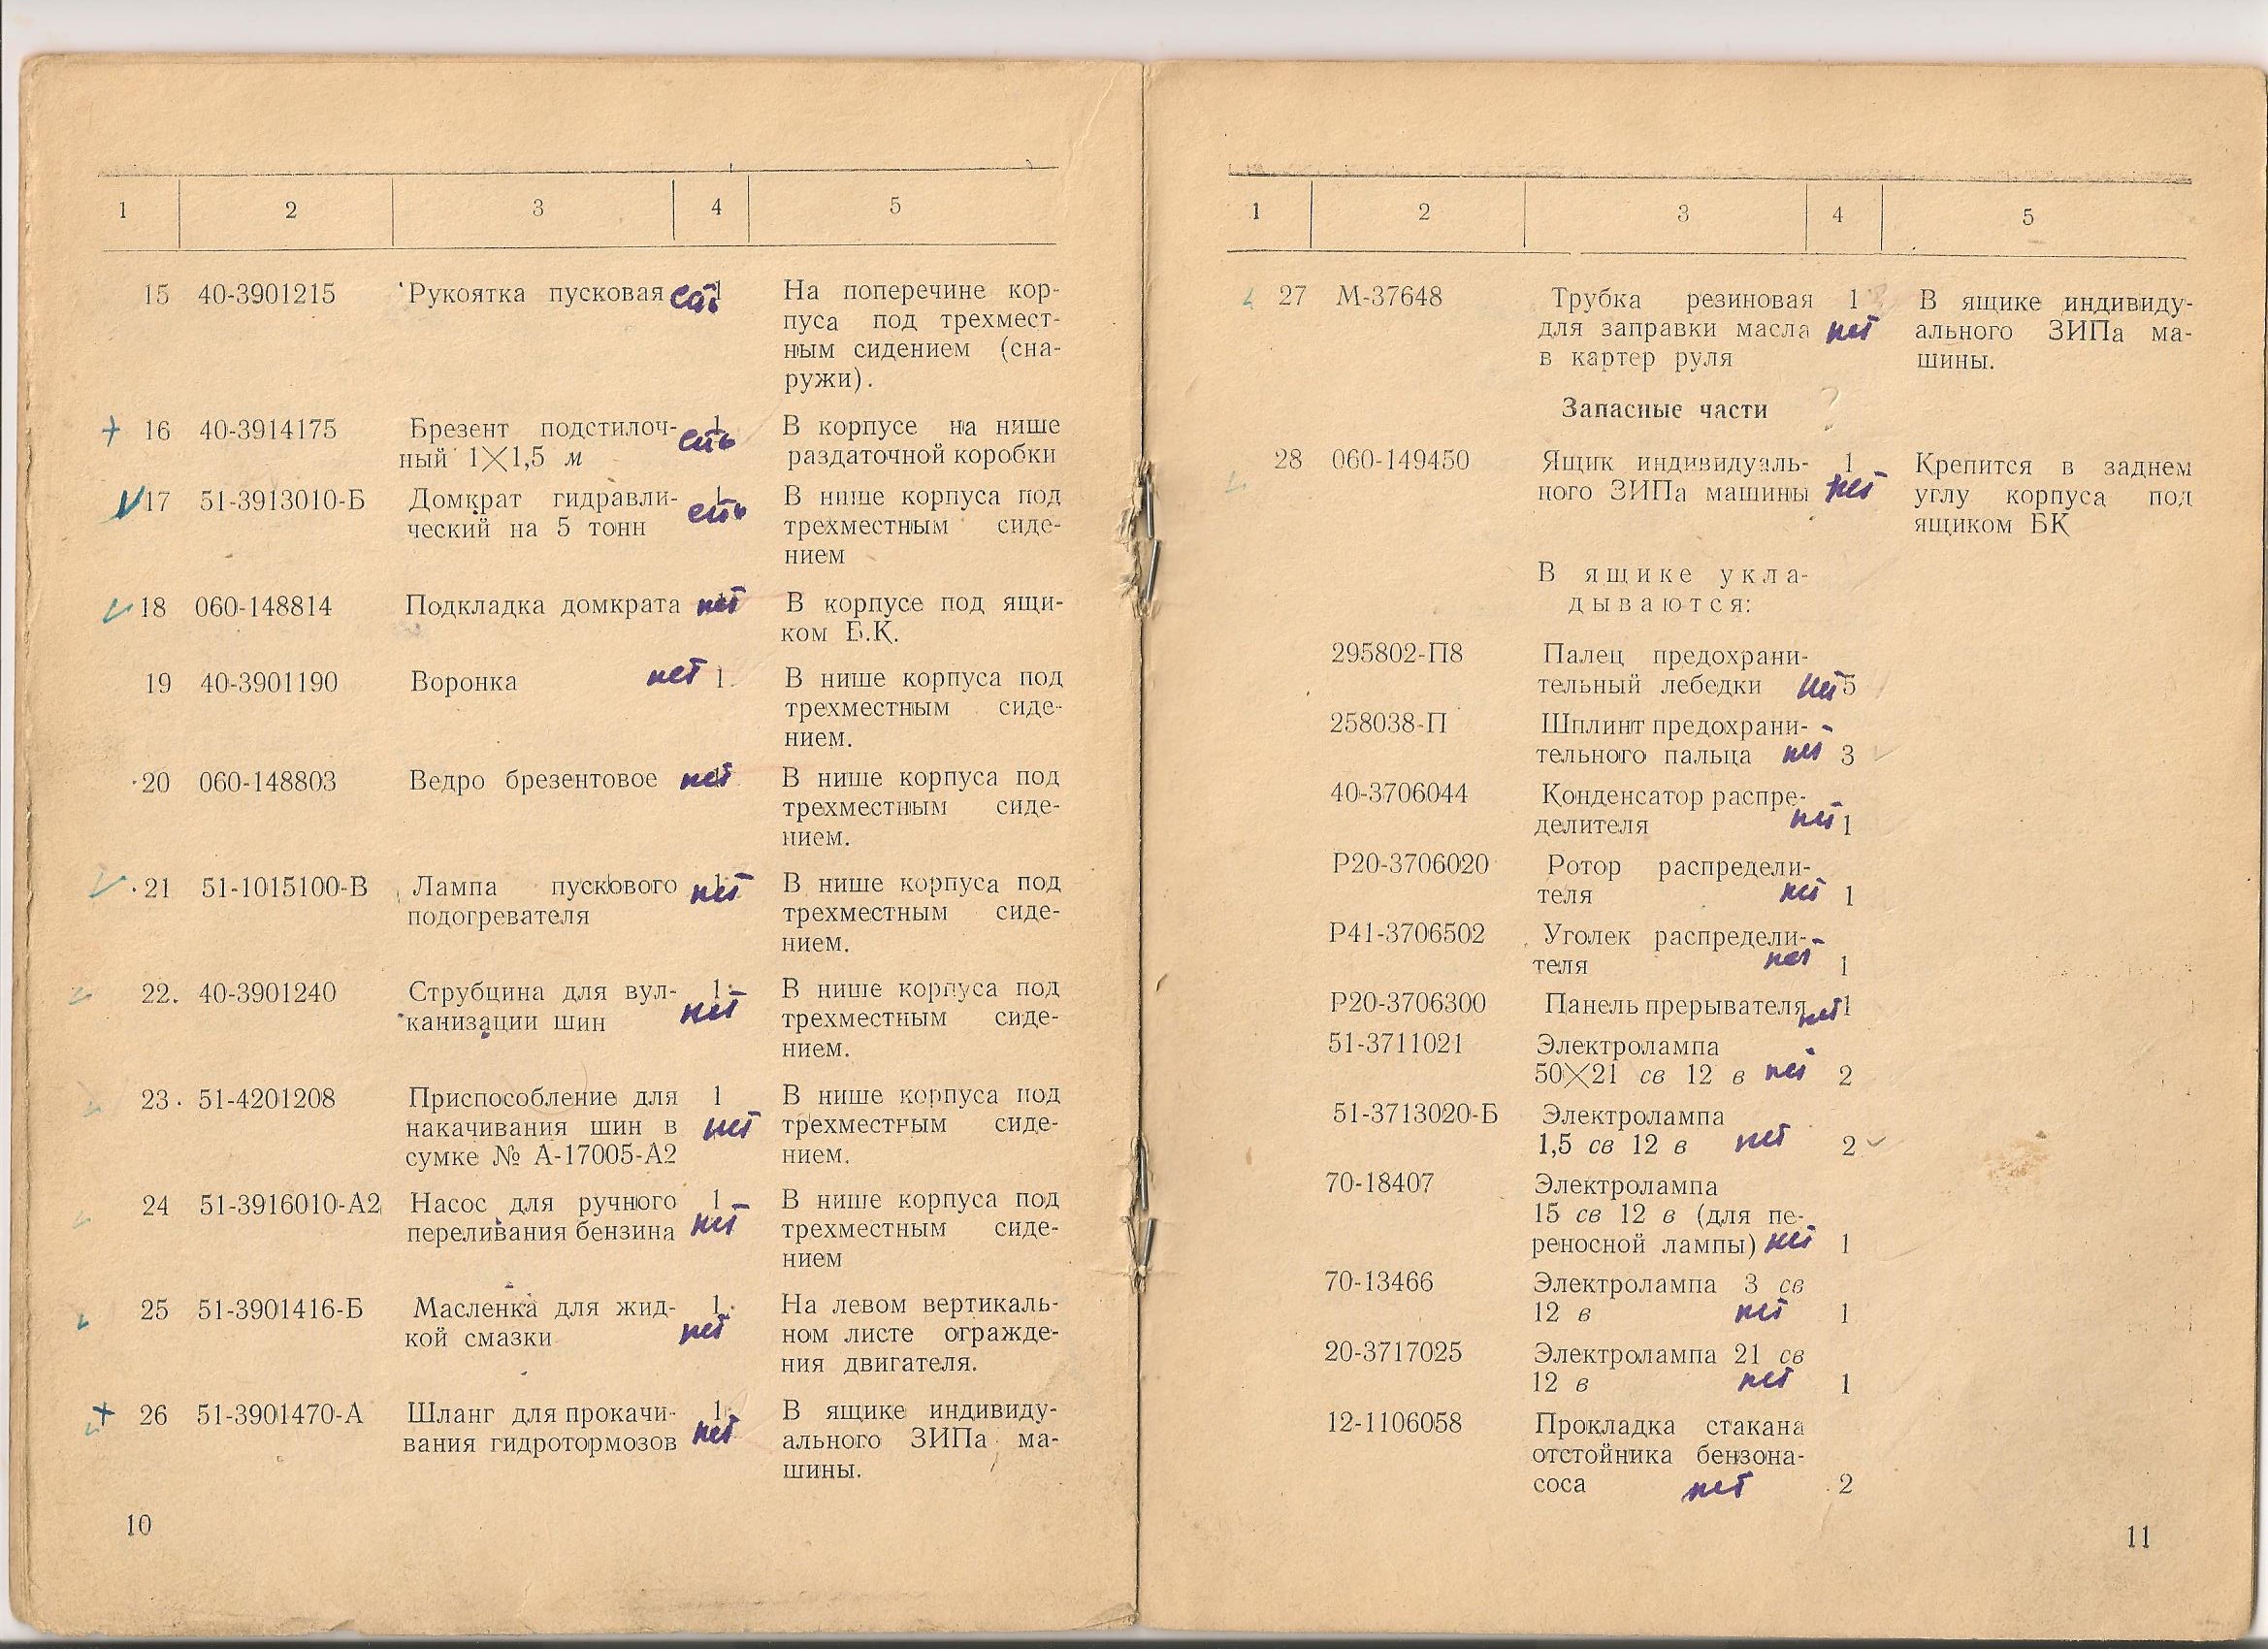 1 2 3 4 5
15 40-3901215 Рукоятка пусковая есть 1 На поперечине кор-
пуса под трехмест-
ным сидением (сна-
ружи).
+ 16 40-3914175 Брезент подстилоч- 1 В корпусе на нише
ный 1×1,5 м есть раздаточной коробки
17 51-3913010-Б Домкрат гидравли- 1 В нише корпуса под
ческий на 5 тонн есть трехместным сиде-
нием
18 060-148814 Подкладка домкрата нет В корпусе под ящи-
ком Б.К.
19 40-3901190 Воронка нет 1 В нише корпуса под
трехместным сиде-
нием.
20 060-148803 Ведро брезентовое нет В нише корпуса под
трехместным сиде-
нием.
21 51-1015100-В Лампа пускового 1 В нише корпуса под
подогревателя нет трехместным сиде-
нием.
22. 40-3901240 Струбцина для вул- 1 В нише корпуса под
канизации шин нет трехместным сиде-
нием.
23. 51-4201208 Приспособление для 1 В нише корпуса под
накачивания шин в нет трехместным сиде-
сумке № А-17005-А2 нием.
24 51-3916010-А2 Насос для ручного 1 В нише корпуса под
переливания бензина нет трехместным сиде-
нием
25 51-3901416-Б Масленка для жид- 1 На левом вертикаль-
кой смазки нет ном листе огражде-
ния двигателя.
+ 26 51-3901470-А Шланг для прокачи- 1 В ящике индивиду-
вания гидротормозов нет ального ЗИПа ма-
шины.
10
1 2 3 4 5
27 М-37648 Трубка резиновая 1 В ящике индивиду-
для заправки масла нет ального ЗИПа ма-
в картер руля шины.
Запасные части ?
28 060-149450 Ящик индивидуаль- 1 Крепится в заднем
ного ЗИПа машины нет углу корпуса под
ящиком БК
В ящике укла-
дываются:
295802-П8 Палец предохрани-
тельный лебедки нет 5
258038-П Шплинт предохрани-
тельного пальца нет 3
40-3706044 Конденсатор распре-
делителя нет 1
Р20-3706020 Ротор распредели-
теля нет 1
Р41-3706502 Уголек распредели-
теля нет 1
Р20-3706300 Панель прерывателя нет 1
51-3711021 Электролампа
50×21 св 12 в нет 2
51-3713020-Б Электролампа
1,5 св 12 в нет 2
70-18407 Электролампа
15 св 12 в (для пе-
реносной лампы) нет 1
70-13466 Электролампа 3 св
12 в нет 1
20-3717025 Электролампа 21 св
12 в нет 1
12-1106058 Прокладка стакана
отстойника бензона-
соса нет 2
11